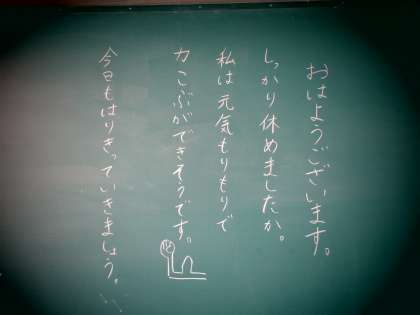 おはようございます。
しっかり休めましたか。
私は元気もりもりで
力こぶができそうです。
今日もはりきっていきましょう。